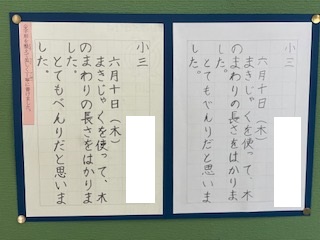 小三
六月十日(木)
まきじゃくを使って、木
のまわりの長さをはかりま
した。
とてもべんりだと思いま
した。
小三
六月十日(木)
まきじゃくを使って、木
のまわりの長さをはかりま
した。
とてもべんりだと思いま
した。